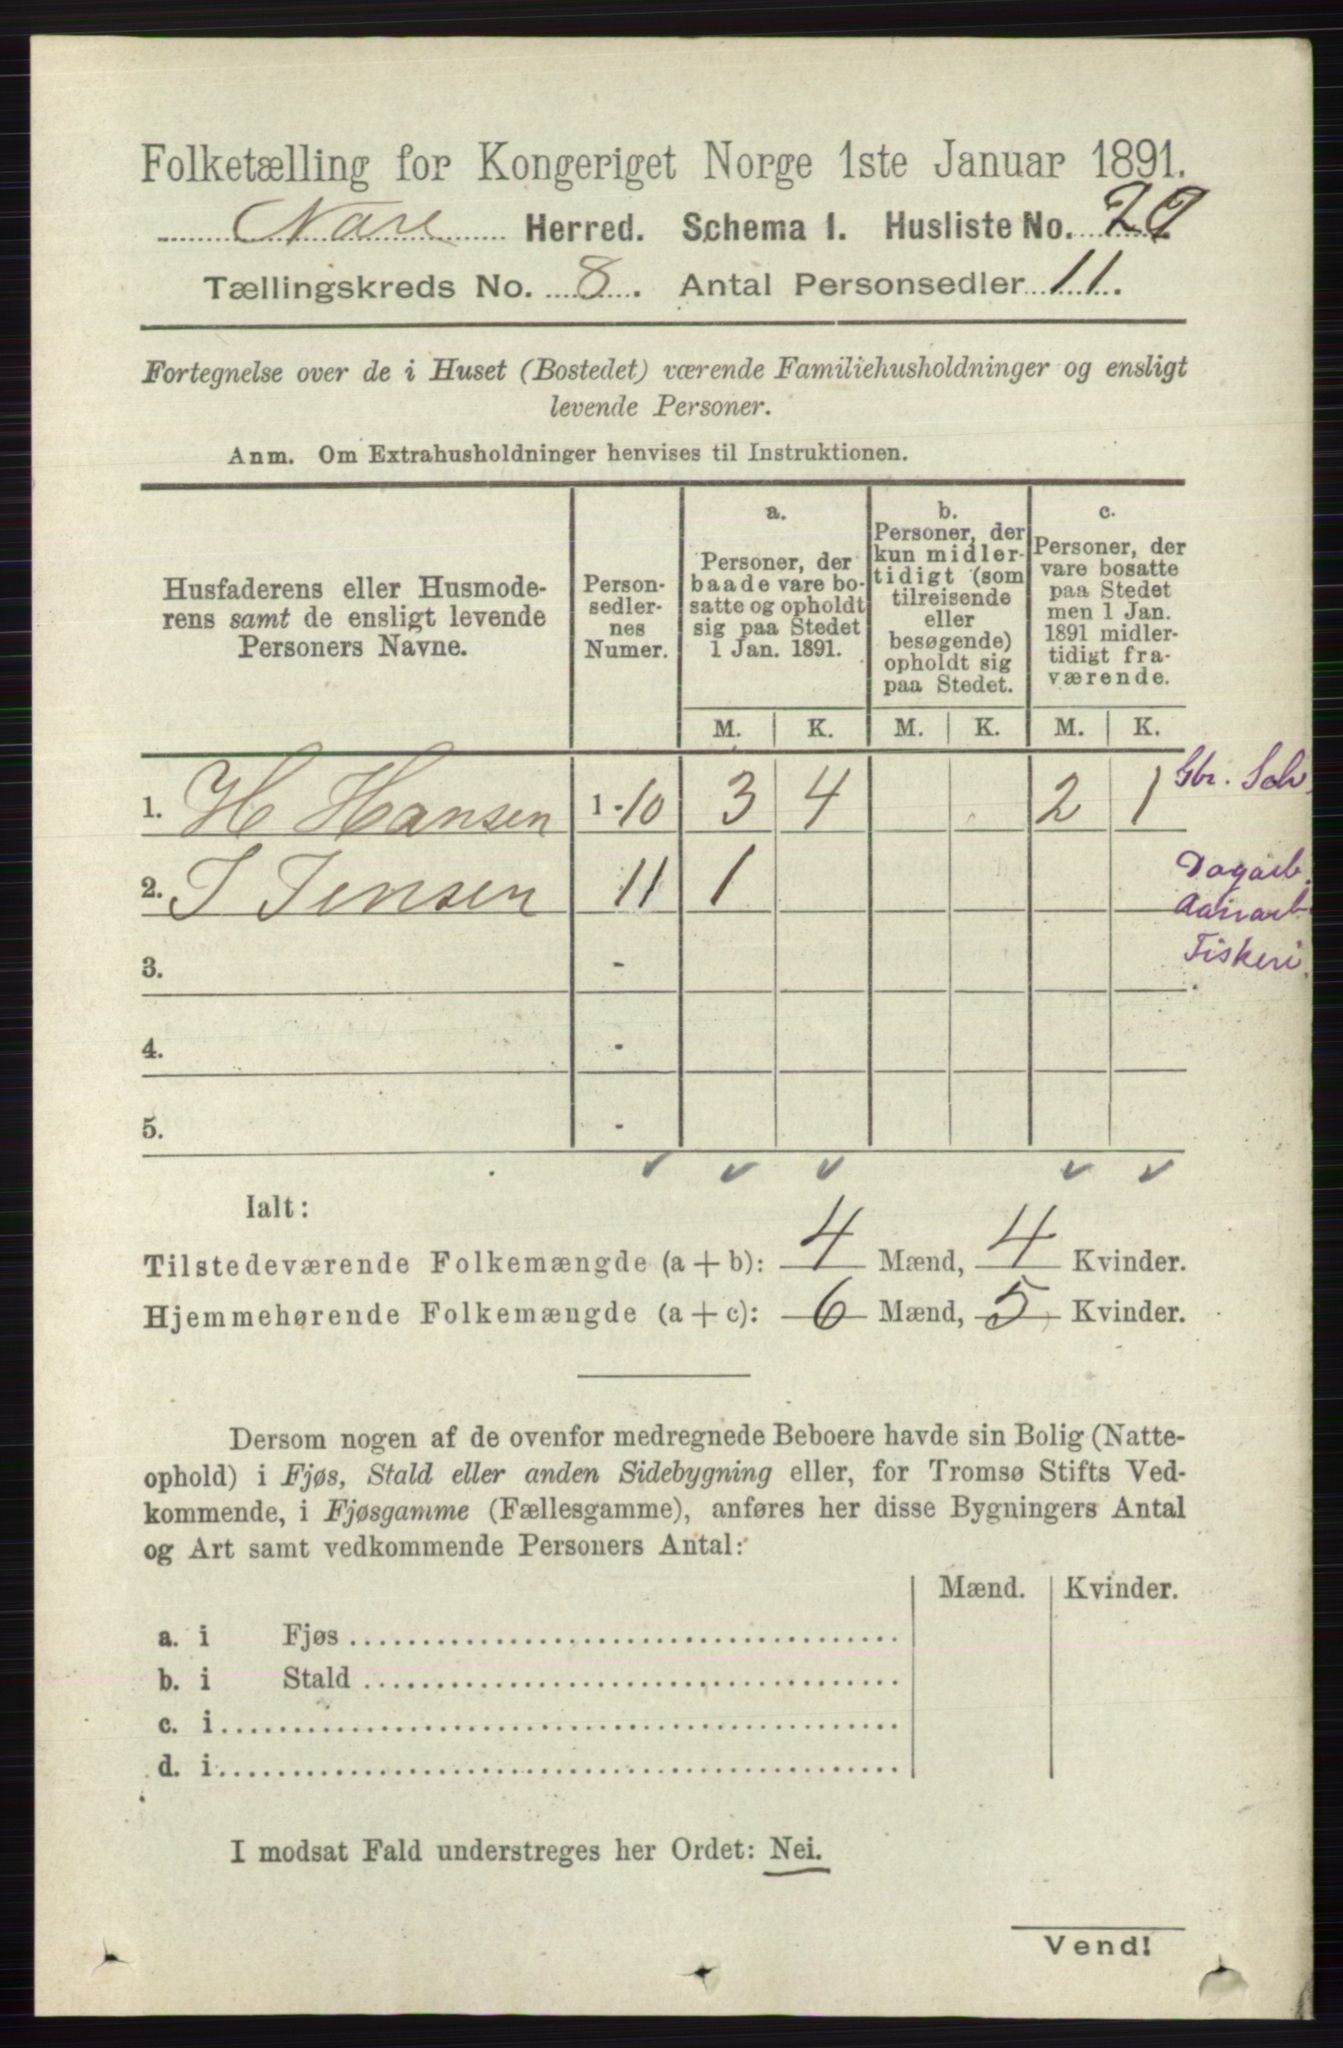 Folketælling for Kongeriget Norge 1ste Januar 1891.
Herred. Schema 1. Husliste No. 29
Tællingskreds No. 8. Antal Personsedler 11.
Fortegnelse over de i Huset (Bostedet) værende Familiehusholdninger og ensligt
levende Personer.
Anm. Om Extrahusholdninger henvises til Instruktionen.
Husfaderens eller Husmode-
rens samt de ensligt levende
Personers Navne.
Person-
sedler-
nes
Numer.
a.
Personer, der
baade vare bo-
satte og opholdt
sig paa Stedet
1 Jan. 1891.
b.
Personer, der
kun midler-
tidigt (som
tilreisende
eller
besøgende)
opholdt sig
paa Stedet.
c.
Personer, der
vare bosatte
paa Stedet
men 1 Jan.
1891 midler-
tidigt fra-
værende.
M. K. M. K. M. K.
1. H Hansen 1-10 3 4 2 1 Gbr. Selv.
2. J Jensen 11 1 Dagarb.
3. -
Fiskeri.
4. -
5. -
Ialt:
Tilstedeværende Folkemængde (a + b): 4 Mænd, 4 Kvinder.
Hjemmehørende Folkemængde (a + c): 6 Mænd, 5 Kvinder.
Dersom nogen af de ovenfor medregnede Beboere havde sin Bolig (Natte-
ophold) i Fjøs, Stald eller anden Sidebygning eller, for Tromsø Stifts Ved-
kommende, i Fjøsgamme (Fællesgamme), anføres her disse Bygningers Antal
og Art samt vedkommende Personers Antal:
Mænd. Kvinder.
a. i Fjøs
b. i Stald
c. i
d. i
I modsat Fald understreges her Ordet: Nei.
Vend!